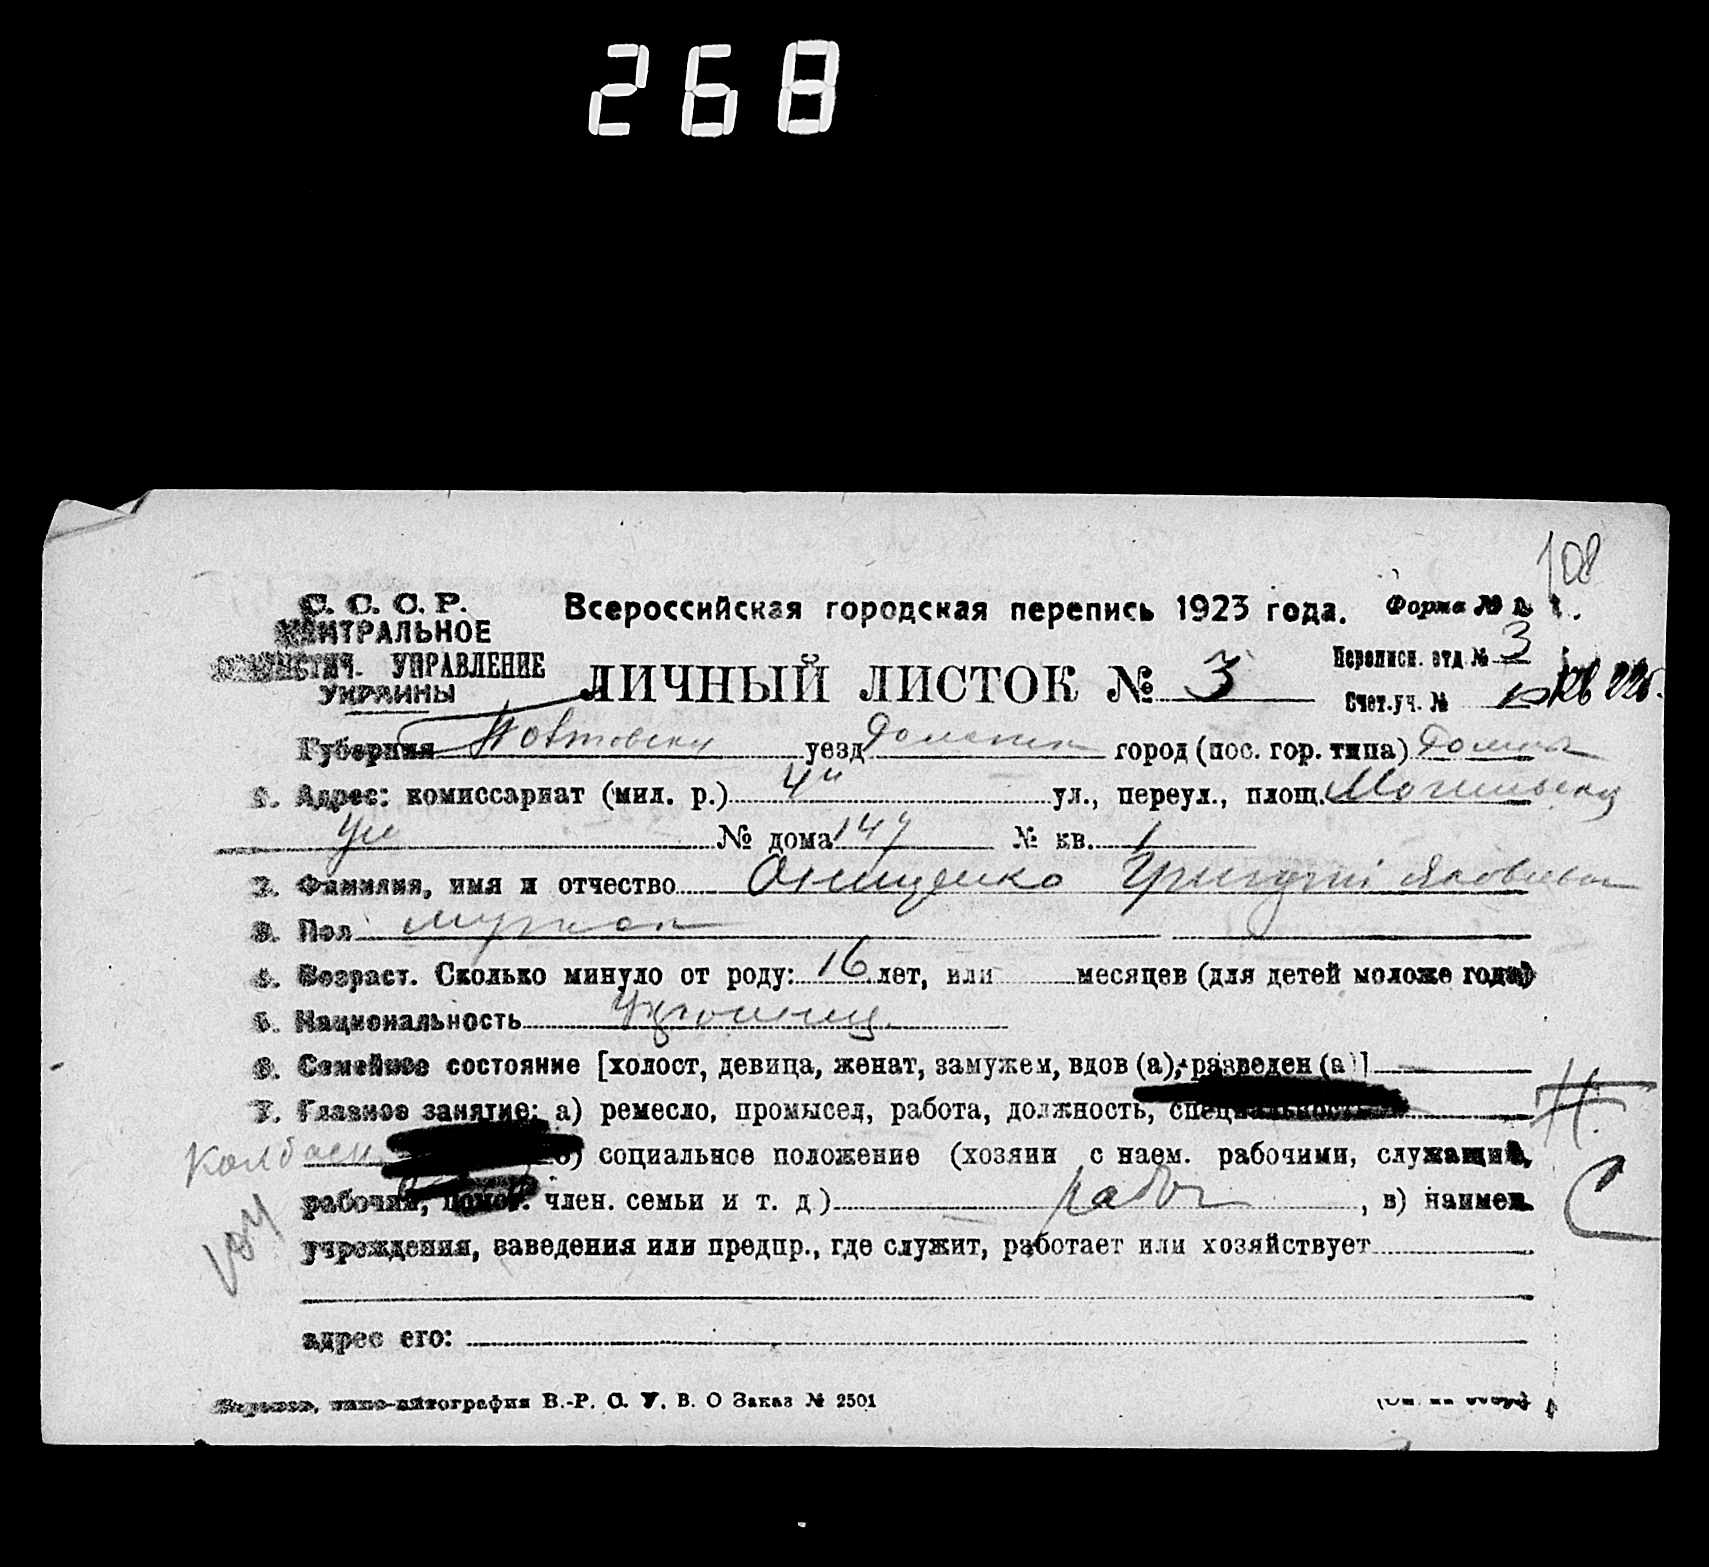 268
108
С. С. С. Р.
ЦЕНТРАЛЬНОЕ
СТАТИСТИЧ. УПРАВЛЕНИЕ
УКРАИНЫ
Всероссийская городская перепись 1923 года. Форма №
Переписн. отд. № 3
ЛИЧНЫЙ ЛИСТОК № 3
Счет. уч. №
Губерния уезд город (пос. гор. типа)
1. Адрес: комиссариат (мил. р.) 4й ул., переул., площ.
ул № дома 147 № кв. 1
2. Фамилия, имя и отчество Онищенко Григорий Яковлев
3. Пол мужск
4. Возраст. Сколько минуло от роду: 16 лет, или месяцев (для детей моложе года)
5. Национальность Украинец
6. Семейное состояние [холост, девица, женат, замужем, вдов (а), разведен (а)]
7. Главное занятие: а) ремесло, промысел, работа, должность, специальность
Н.
Колбасн. б) социальное положение (хозяин с наем. рабочими, служащий,
рабочий, помог. член. семьи и т. д.) рабоч , в) наимен.
С
учреждения, заведения или предпр., где служит, работает или хозяйствует
адрес его:
Харьков, типо-литография В.-Р. С. У. В. О Заказ № 2501